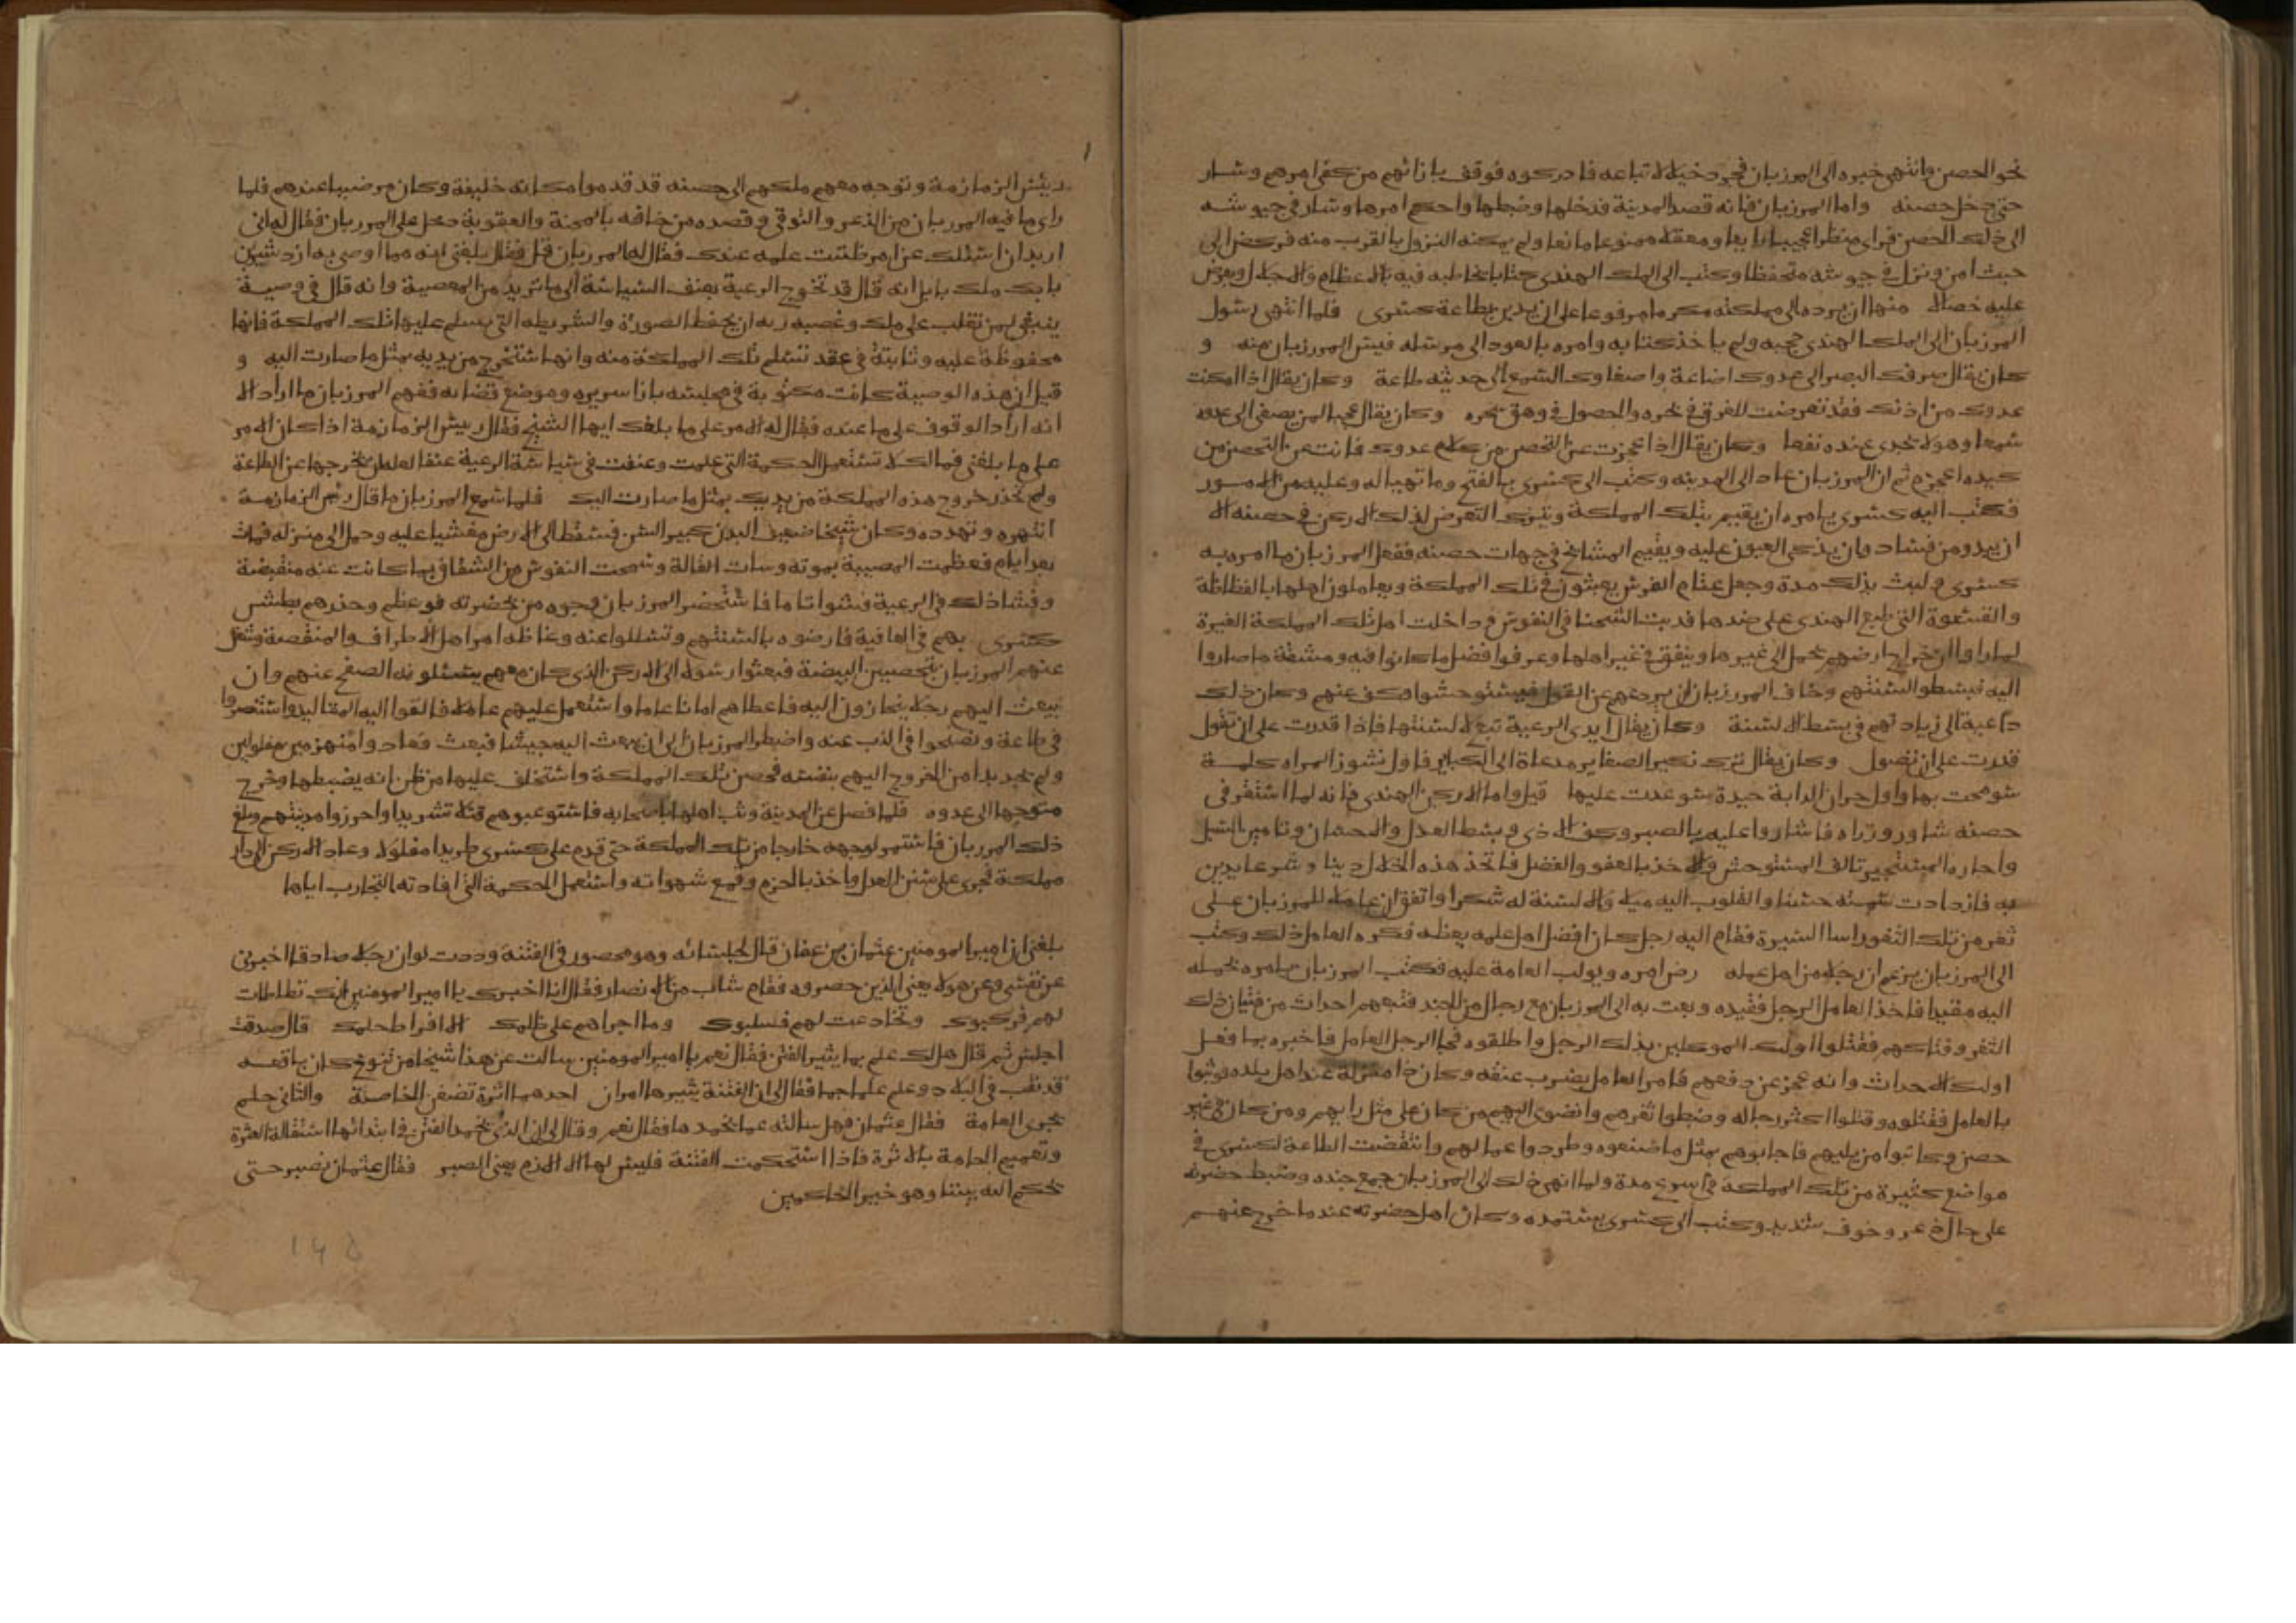 نحو الحصن وانتهى خبره الى المرزبان فجرد خيلا لاتباعه فادركوه فوقف بازائهم من كفى امرهم وسار
حتى دخل حصنه واما المرزبان فانه قصد المدينة فدخلها وضبطها واحكم امرها وسار في جيوشه
الى ذلك الحصن فراى منظرا عجيبا رايعا ومعقلا ممنوعا مانعا ولم يمكنه النزول بالقرب منه فركض الى
حيث امن ونزل في جيوشه متحفظا وكتب الى الملك الهندي كتابا يخاطبه فيه بالاعظام والاجلال ويعرض
عليه خصالا منها ان يرده الى مملكته مكرما مرفوعا على ان يدين بطاعة كسرى فلما انتهى رسول
المرزبان الى الملك الهندي حجبه ولم ياخذ كتابه وامره بالعود الى مرسله فيئس المرزبان منه و
كان يقال صرفك البصر الى عدوك اضاعة واصغاوك السمع الى حديثه طاعة وكان يقال اذا امكنت
عدوك من اذنك فقد تعرضت للغرق في بحره والحصول في وهق سحره وكان يقال عجبا لمن يصغى الى عدوه
سمعا وهو لا يجدى عنده نفعا وكان يقال اذا عجزت عن التحصن من كلام عدوك فانت عن التحصن من
كيده اعجز ثم ان المرزبان عاد الى المدينه وكتب الى كسرى بالفتح وما تهيا له وعليه من الامور
فكتب اليه كسرى يامره ان يقيم بتلك المملكة ويترك التعرض لذلك الاركن في حصنه الا
ان يبدو من فساد وان يذكى العيون عليه ويقيم المسالح في جهات حصنه ففعل المرزبان ما امره به
كسرى ولبث بذلك مدة وجعل عتاة الفرس يعيثون في تلك المملكة ويعاملون اهلها بالفظاظة
والقسوة التي طبع الهندي على ضدها فدبت الشحنا في النفوس وداخلت اهل تلك المملكة الغيرة
لما راوا ان خراج ارضهم يحمل الى غيرها وينفق في غير اهلها وعرفوا فضل ما كانوا فيه ومشقة ما صاروا
اليه فبسطوا السنتهم وخاف المرزبان ان يردعهم عن القول فيستوحشوا وكف عنهم وكان ذلك
داعية الى زيادتهم في بسط الالسنة وكان يقال ايدى الرعية تبع لالسنتها فاذا قدرت على ان تقول
قدرت على ان تصول وكان يقال ترك نكير الصغاير مدعاة الى الكباير فاول نشوز المراه كلمة
سومحت بها واول حران الدابة حيدة سوعدت عليها قيل واما الاركن الهندي فانه لما استقر في
حصنه شاور وزراه فاشاروا عليه بالصبر وكف الاذى وبسط العدل والاحسان وتامين السبل
واجارة المستجير وتالف المستوحش والاخذ بالعفو والفضل فاتخذ هذه الخلال دينا وشرعا يدين
به فازدادت سمته حسنا والقلوب اليه ميلا والالسنة له شكرا واتفق ان عاملا للمرزبان على
ثغر من تلك الثغور اسا السيرة فقام اليه رجل كان افضل اهل عمله يعظه فكره العامل ذلك وكتب
الى المرزبان يزعم ان رجلا من اهل عمله رض امره ويولب العامة عليه فكتب المرزبان يامره بحمله
اليه مقيدا فاخذ العامل الرجل فقيده وبعث به الى المرزبان مع رجال من الجند فتبعهم احداث من فتيان ذلك
الثغر وفتاكهم فقتلوا اولئك الموكلين بذلك الرجل واطلقوه فجا الرجل العامل فاخبره بما فعل
اولئك الاحداث وانه عجز عن دفعهم فامر العامل بضرب عنقه وكان ذا منزلة عند اهل بلده فوثبوا
بالعامل فقتلوه وقتلوا اكثر رجاله وضبطوا ثغرهم وانضوى اليهم من كان على مثل رايهم ومن كان في غير
حصن وكاتبوا من يليهم فاجابوهم بمثل ما صنعوه وطردوا عمالهم وانتقضت الطاعة لكسرى في
مواضع كثيرة من تلك المملكة في اسرع مدة ولما انهى ذلك الى المرزبان جمع جنده وضبط حضرته
على حال ذعر وخوف شديد وكتب الى كسرى يستمده وكان اهل حضرته عندما خرج عنهم
رئيس الزمازمة وتوجه معهم ملكهم الى حصنه قد قدموا مكانه خليفة وكان مرضيا عندهم فلما
راى ما فيه المرزبان من الذعر والتوقى وقصده من خافه بالمحنة والعقوبة دخل على المرزبان فقال له انى
اريد ان اسئلك عن امر ظننت علمه عندك فقال له المرزبان قل فقال بلغنى انه مما اوصى به ازدشير بن
بابك ملك بابل انه قال قد تخرج الرعية بعنف السياسة الى ما تريد من المعصية وانه قال في وصية
ينبغي لمن تغلب على ملك وغصبه ربه ان يحفظ الصورة والشريطه التي يسلم عليها تلك المملكة فانها
محفوظة عليه وثابتة في عقد تسلم تلك المملكة منه وانها ستخرج من يديه بمثل ما صارت اليه و
قيل ان هذه الوصية كانت مكتوبة في مجلسه بازا سريره وموضع قضايه ففهم المرزبان ما اراد الا
انه اراد الوقوف على ما عنده فقال له الامر على ما بلغك ايها الشيخ فقال رييس الزمازمة اذا كان الامر
على ما بلغني فما لك لا تستعمل الحكمة التي علمت وعنفت في سياسة الرعية عنفا لعله ان يخرجها عن الطاعة
ولم تحذر خروج هذه المملكة من يديك بمثل ما صارت اليك فلما سمع المرزبان ما قال رئيس الزمازمة
انتهره وتهدده وكان شيخا ضعيف البدن كبير السن فسقط الى الارض مغشيا عليه وحمل الى منزله فمات
بعد ايام فعظمت المصيبة بموته وسات القالة وسمحت النفوس من الشقاق بما كانت عنه منقبضة
وفشا ذلك في الرعية فشوا تاما فاستحضر المرزبان وجوه من بحضرته فوعظهم وحذرهم بطش
كسرى بهم في العافية فارضوه بالسنتهم وتسللوا عنه وغاظه امر اهل الاطراف والمنتقصة وشغل
عنهم المرزبان بتحصين البيضة فبعثوا رسولا الى الاركن الذي كان معهم يسئلونه الصفح عنهم وان
يبعث اليهم رجلا ينحازون اليه فاعطاهم امانا عاما واستعمل عليهم عاملا فالقوا اليه المقاليد واستنصروا
في طاعة ونصحوا في الذب عنه واضطر المرزبان الى ان بعث اليه جيشا فبعث فعادوا منهزمين مفلولين
ولم يجد بدا من الخروج اليهم بنفسه فحصن تلك المملكة واستخلف عليها من ظن انه يضبطها وخرج
متوجها الى عدوه فلما فصل عن المدينة وثب اهلها باصحابه فاستوعبوهم قتلا تشريدا واحرزوا مدينتهم وبلغ
ذلك المرزبان فاستمر لوجهه خارجا من تلك المملكة حتى قدم على كسرى طريدا مفلولا وعاد الاركن الى دار
مملكة فجرى على سنن العدل واخذ بالحزم وقمع شهواته واستعمل الحكمة التي افادته التجارب اياها
بلغني ان امير المومنين عثمان بن عفان قال لجلسائه وهو محصور في الفتنة وددت لو ان رجلا صادقا اخبرني
عن نفسي وعن هولا يعني الذين حصروه فقام شاب من الانصار فقال انا اخبرك يا امير المومنين انك تطاطات
لهم فركبوك وتخادعت لهم فسلبوك وما اجراهم على ظلمك الا افراط حلمك قال صدقت
اجلس ثم قال هل لك علم بما يثير الفتن فقال نعم يا امير المومنين سالت عن هذا شيخا من تنوخ كان باقعه
قد نقب في البلاد وعلم علما جما فقال لى ان الفتنة يثيرها امران احدهما اثرة تضغن الخاصة والثاني حلم
يجرى العامة فقال عثمان فهل سالته عما يخمدها فقال نعم وقال لى ان الذي يخمد الفتن في ابتدائها استقالة العثرة
وتعميم العامة بالاثرة فاذا استحكمت الفتنة فليس لها الا الازم يعني الصبر فقال عثمان نصبر حتى
يحكم الله بيننا وهو خير الحاكمين